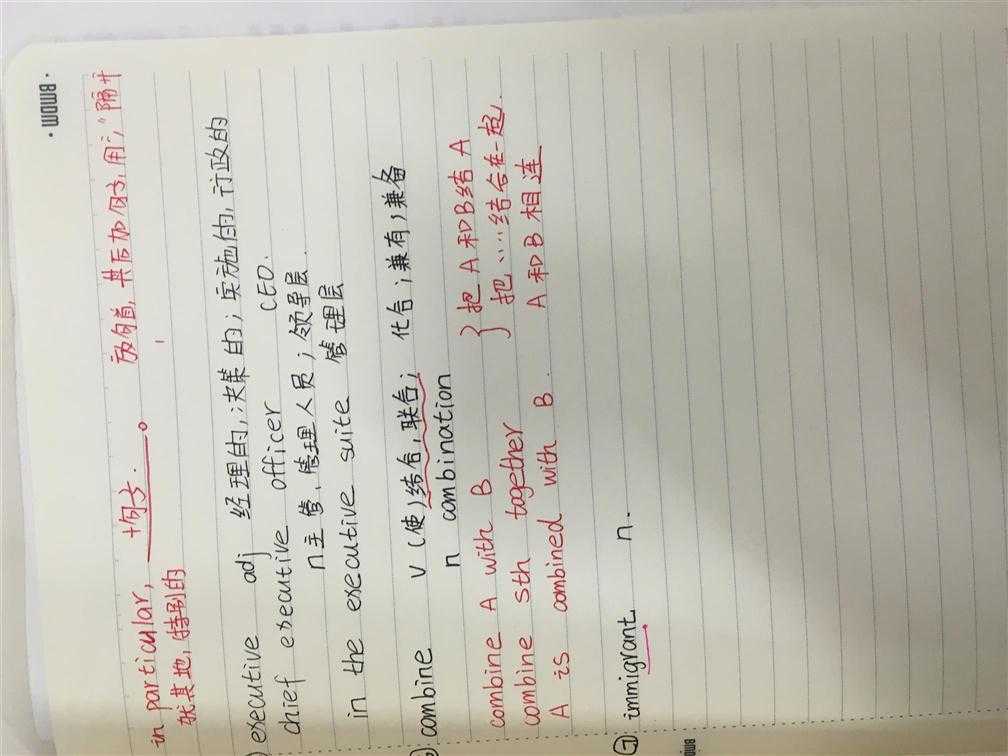 · BMDM ·
in particular, +句子. 。 放句首, 其后加句子, 用";"隔开
就其地, 特别的
executive adj 经理的,;决策的;实施的,行政的
chief executive officer CEO.
n 主管、管理人员;领导层
in the executive suite 管理层
combine v (使)结合,联合; 化合;兼有;兼备
n combination
combine A with B } 把A和B结A
combine sth together 把…结合在一起.
A is combined with B. A和B相连
7 immigrant n.